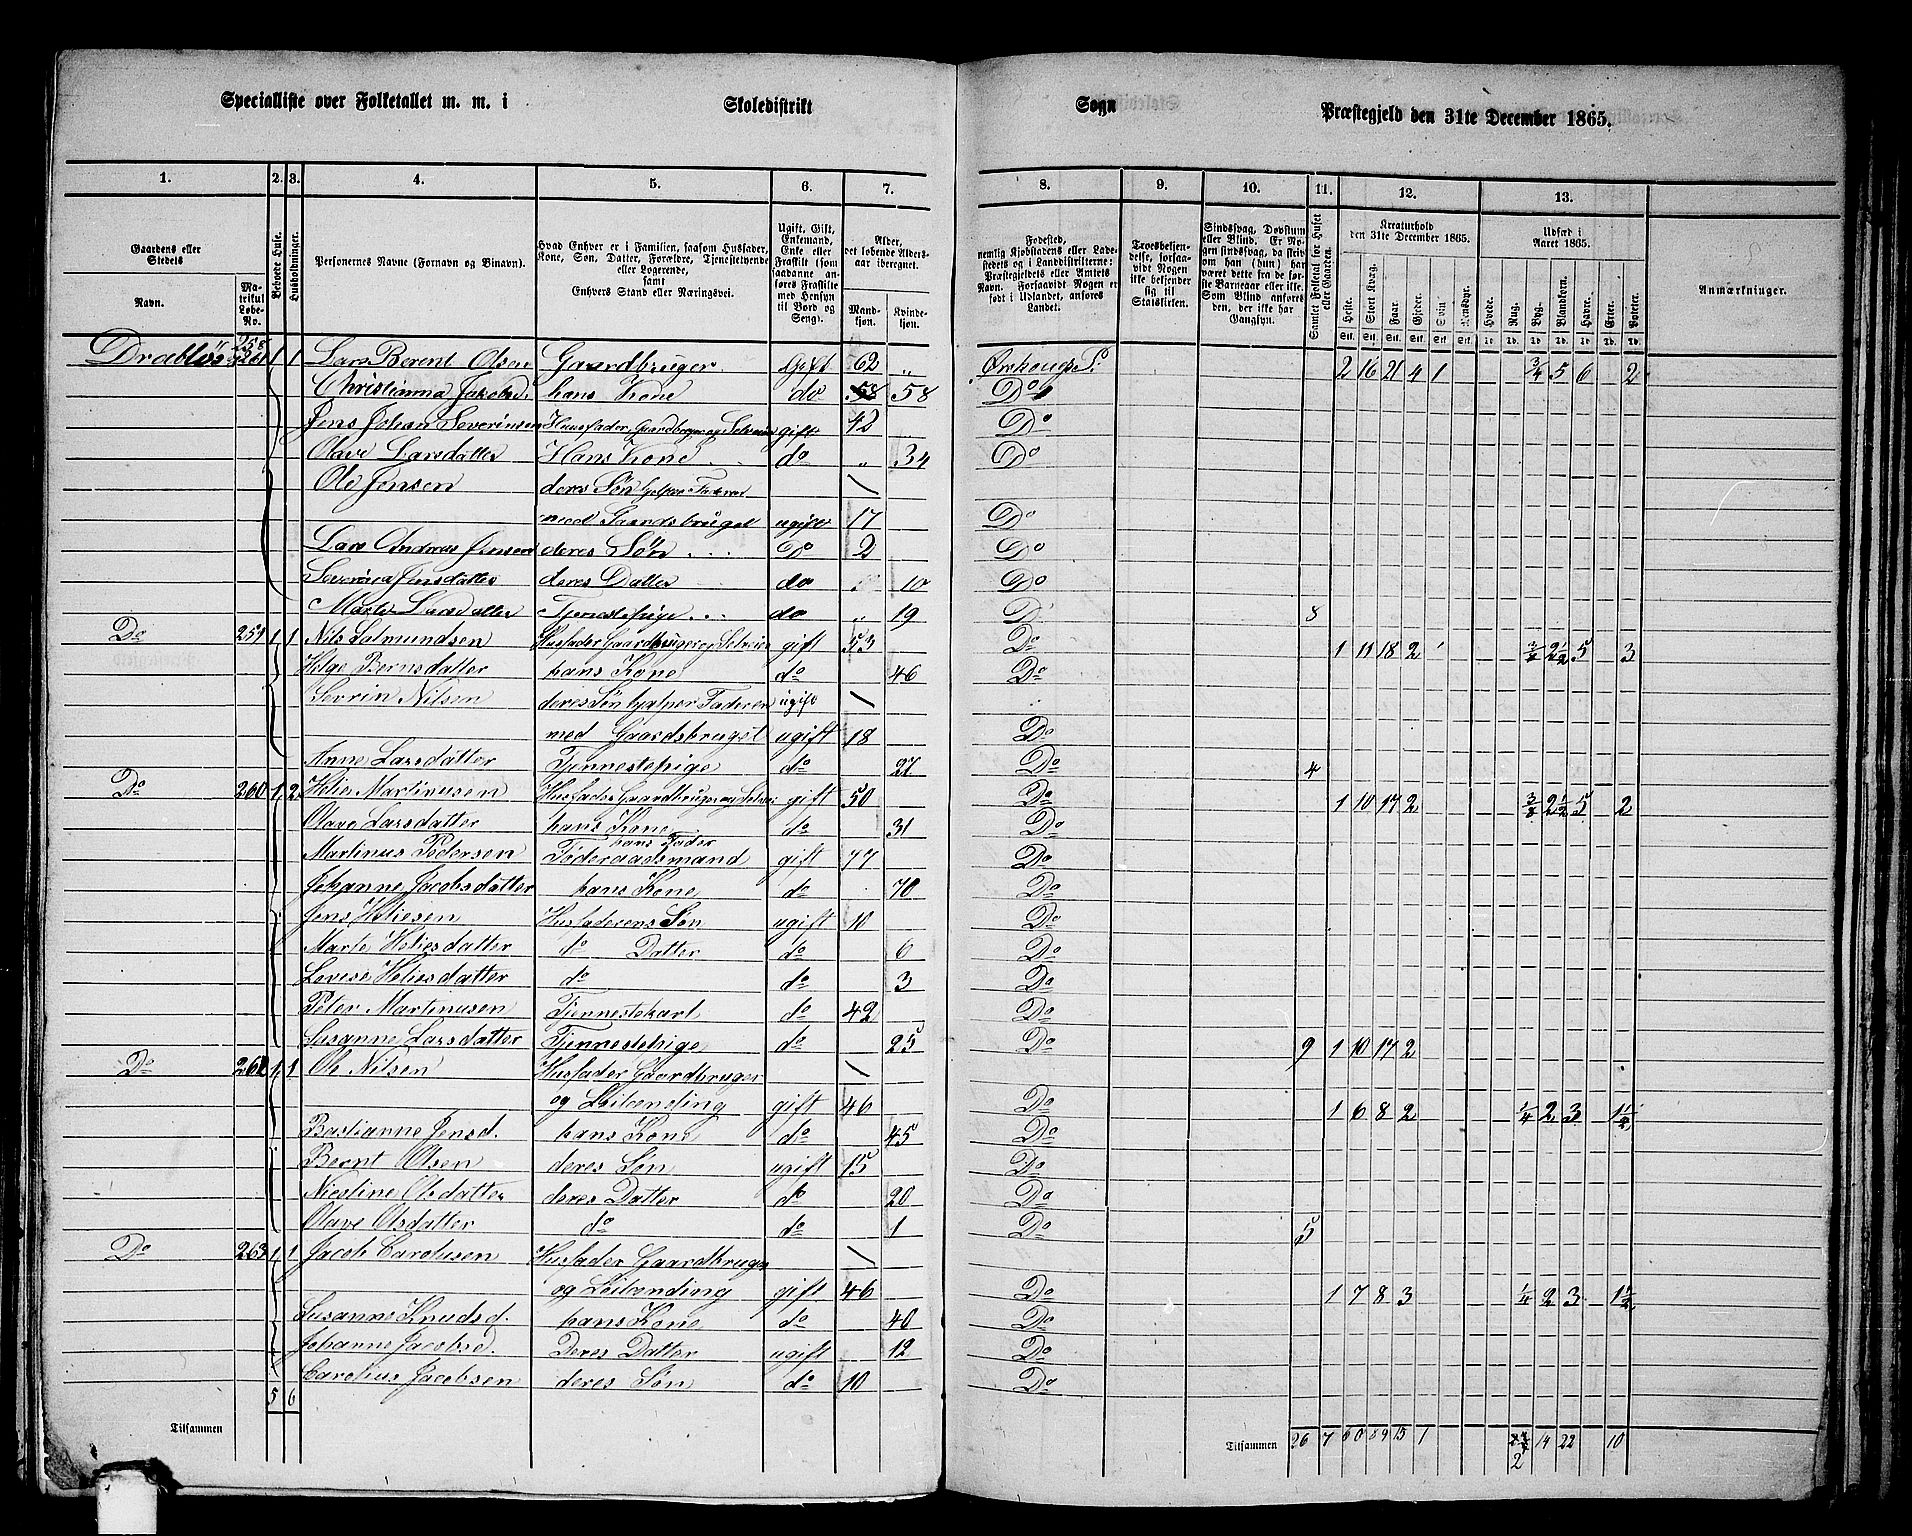 Specialliste over Folketallet m. m. i Skoledistrikt Sogn Præstegjeld den 31te December 1865.
1. 2. 3. 4. 5. 6. 7. 8. 9. 10. 11. 12. 13.
Gaardens eller Stedets
Navn.
Matrikul Løbe-No.
Beboede Huse.
Husholdninger.
Personernes Navne (Fornavn og Binavn).
Hvad Enhver er i Familien, saasom Husfader, Kone, Søn, Datter, Forældre, Tjenstetyende eller Logerende, samt Enhvers Stand eller Næringsvei.
Ugift, Gift, Enkemand, Enke eller Fraskilt (som saadanne anføres Fraskilte med Hensyn til Bord og Seng).
Alder, det løbende Aldersaar iberegnet.
Mandkjøn.
Kvindekjøn.
Fødested, nemlig Kjøbstadens eller Ladestedets og i Landdistrikterne: Præstegjeldets eller Amtets Navn. Forsaavidt Nogen er født i Udlandet, anføres Landet.
Troesbekjendelse, forsaavidt Nogen ikke bekjender sig til Statskirken.
Sindssvag, Døvstum eller Blind. Er Nogen sindssvag, da skriv om han (hun) har været dette fra de første Barneaar eller ikke. Som Blind anføres den, der ikke har Gangsyn.
Samlet Folketal for Huset eller Gaarden.
Kreaturhold den 31te December 1865.
Heste. Stort Kvæg. Faar. Gjeder. Svin. Rensdyr.
Udsæd i Aaret 1865.
Hvede. Rug. Byg. Blandkorn. Havre. Erter. Poteter.
Anmærkninger.
Dræbløs 258 1 1 Lars Berent Olsen Gaardbruger Gift 62 „ Ørskougs P. 2 16 21 4 1 3/4 5 6 2
Christianna Jakobsd. hans Kone do 58 Do
Jens Johan Severinsen Huusfader, Gaardbruger og Selveier gift 42 Do
Olave Larsdatter Hans Kone do „ 34 Do
Ole Jensen deres Søn hjelper Faderen
med Gaardsbruget ugift 17 Do
Lars Andreas Jensen deres Søn Do 2 Do
Severina Jensdatter deres Datter do 10 Do
Marte Larsdatter Tjenestepige do „ 19 D 8
Do 259 1 1 Nils Salmundsen Husfader Gaardbruger og Selveier gift 53 Do 1 11 18 2 1 3/8 2 1/2 5 3
Helge Bernsdatter hans Kone do 46 Do
Sevrin Nilsen deres Søn hjelper Faderen ugift
med Gaardsbruget ugift 18 Do
Anne Larsdatter Tjennestepige do 27 Do 4
Do 260 1 2 Helie Martinusen Husfader Gaardbruger og Selveier gift 50 Do 1 10 17 2 3/8 2 1/2 5 2
Olave Larsdatter hans Kone do 31 Do
Martinus Pedersen hans Fader Føderaadsmand gift 77 Do
Johanne Jacobsdatter hans Kone do 70 Do
Jens Heliesen Husfaderens Søn ugift 10 Do
Marte Heliesdatter do Datter do 6 Do
Lovise Heliesdatter do do 3 Do
Peter Martinusen Tjennestekarl do 42 Do
Susanne Larsdatter Tjennestepige do 25 Do 9 1 10 17 2
Do 262 1 1 Ole Nilsen Husfader Gaardbruger
og Leilænding gift 46 Do 1 6 8 2 1/4 2 3 1 1/2
Bastianne Jensd. hans Kone do 45 Do
Bernt Olsen deres Søn ugift 15 Do
Nicoline Olsdatter deres Datter do 20 Do
Olave Olsdatter do do 1 Do 5
Do 263 1 1 Jacob Carolusen Husfader Gaardbruger
og Leilænding gift 46 Do 1 7 8 3 1/4 2 3 1 1/2
Susanne Knudsd. hans Kone do 40 Do
Johanne Jacobsd. Deres Datter ugift 12 Do
Carolius Jacobsen deres Søn do 10 Do
5 6
Tilsammen Tilsammen 26 7 60 89 15 1 2 14 22 10